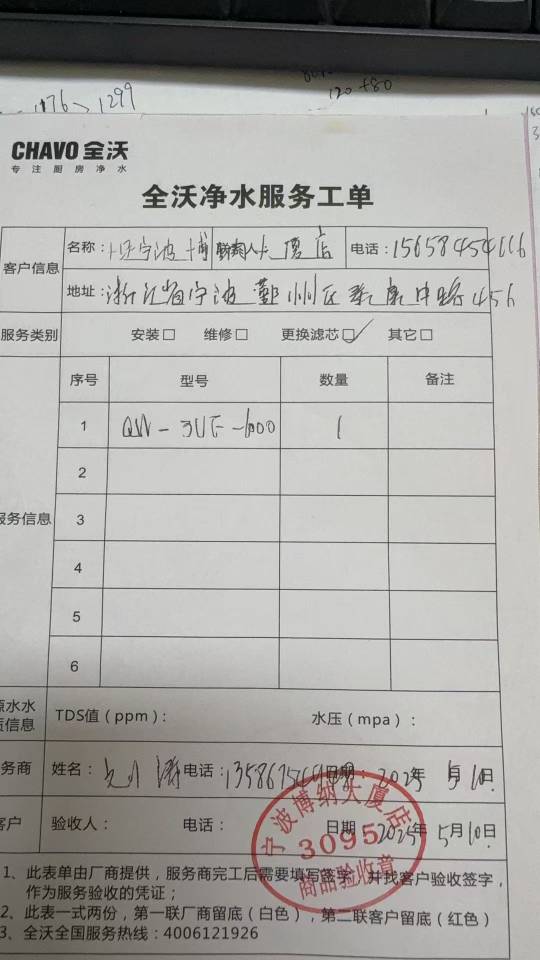 1299
120+80
CHAVO 全沃
专注厨房净水
全沃净水服务工单
客户信息 名称：宁波博 联系人 大厦店 电话：15658454666
地址：浙江省宁波鄞州区泰康中路456
服务类别 安装□ 维修□ 更换滤芯☑ 其它□
服务信息 序号 型号 数量 备注
1 QW-3UF-600 1
2
3
4
5
6
源水水质信息 TDS值（ppm）： 水压（mpa）：
务商 姓名： 电话： 日期：2025年5月10日
客户 验收人： 电话： 日期 2025年5月10日
宁波博纳大厦店
3095
商品验收章
1、此表单由厂商提供，服务商完工后需要填写签字，并找客户验收签字，
作为服务验收的凭证；
2、此表一式两份，第一联厂商留底（白色），第二联客户留底（红色）
3、全沃全国服务热线：4006121926